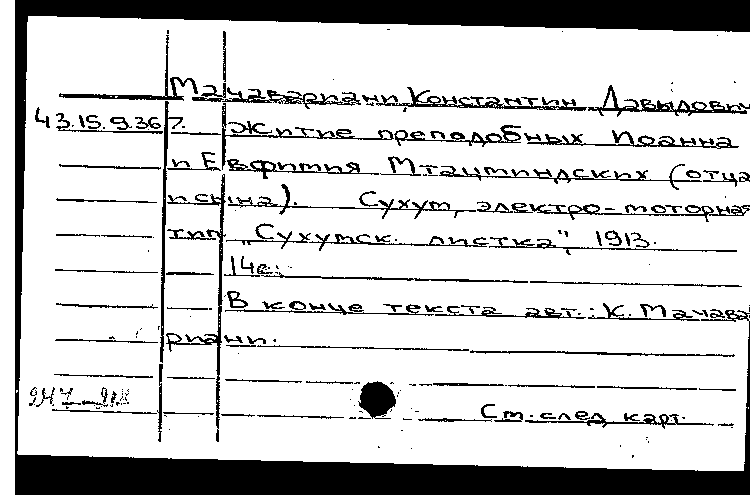 Мачавариани, Константин Давыдович
43.15.9.367. Житие преподобных Иоанна
и Евфимия Мтацминдских (отца
и сына). Сухум, электро-моторная
тип. "Сухумск. листка", 1913.
14с.
В конце текста авт.: К. Мачава-
риани.
См. след. карт.